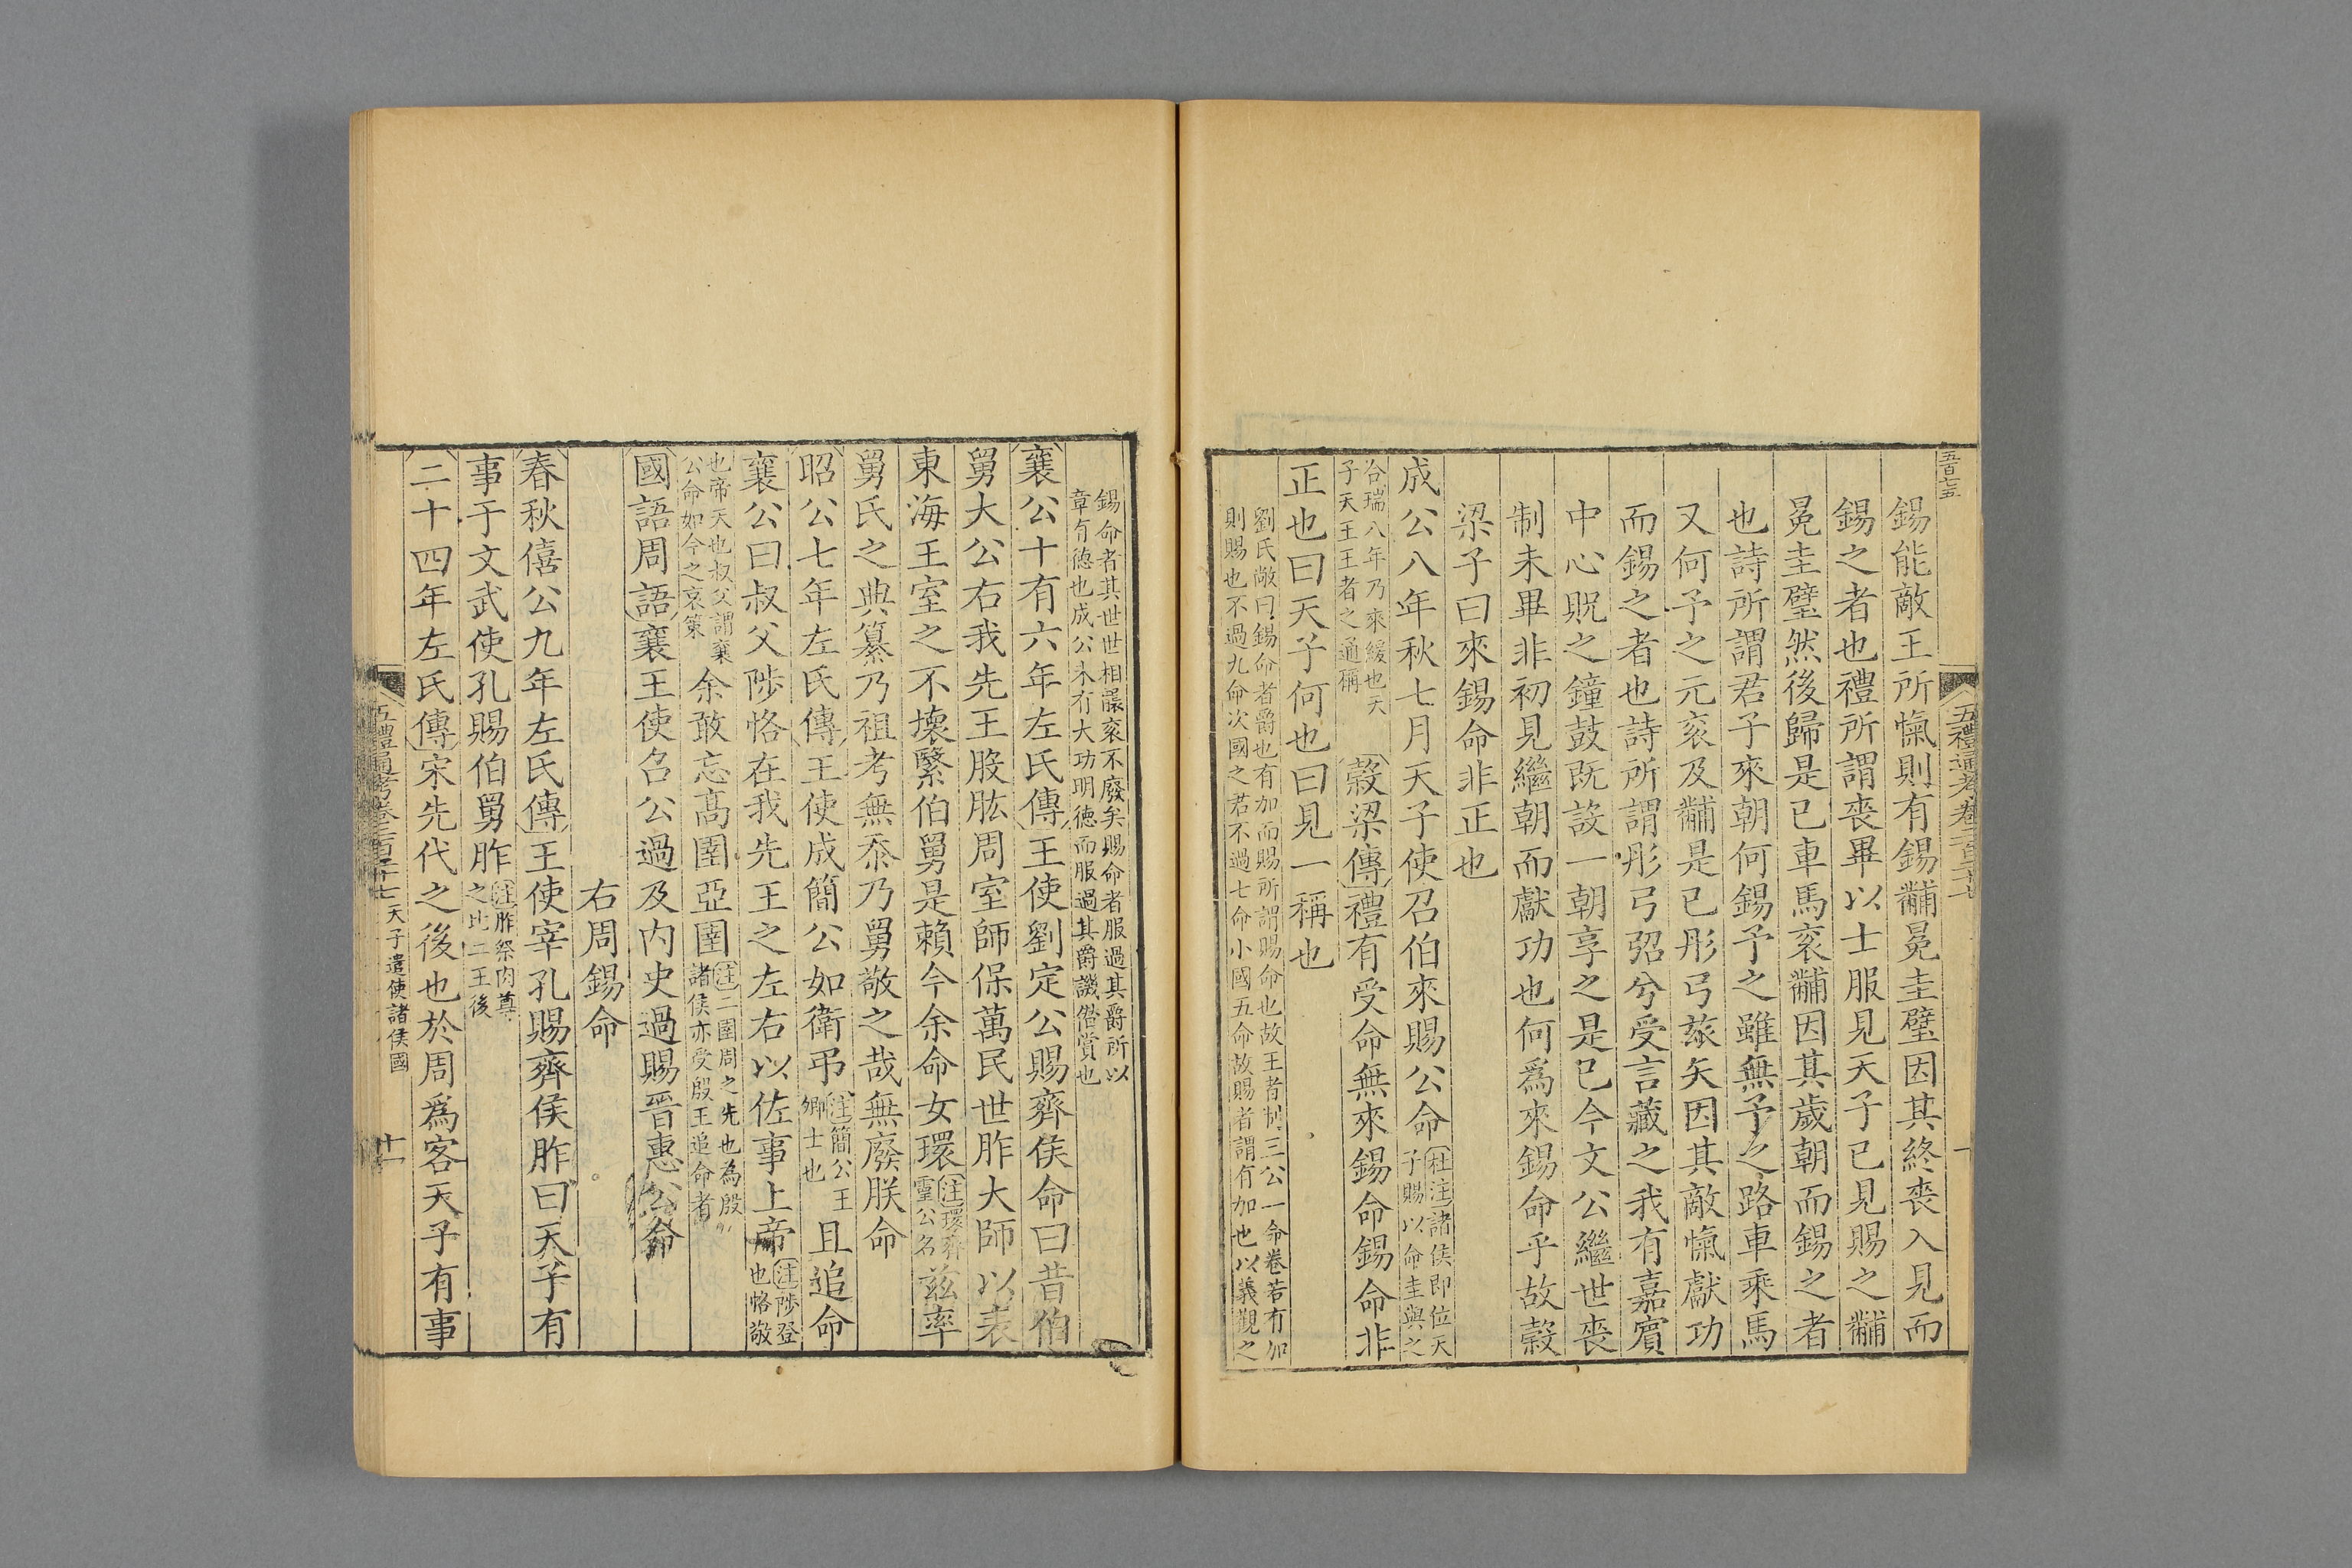 五百七五
五禮通考卷二百二十七
錫能敵王所愾則有錫黼冕圭璧因其終喪入見而
錫之者也禮所謂喪畢以士服見天子已見賜之黼
冕圭璧然後歸是已車馬衮黼因其歲朝而錫之者
也詩所謂君子來朝何錫予之雖無予之路車乘馬
又何予之元衮及黼是已彤弓玈矢因其敵愾獻功
而錫之者也詩所謂彤弓弨兮受言藏之我有嘉賓
中心貺之鐘鼓既設一朝享之是已今文公繼世喪
制未畢非初見繼朝而獻功也何為來錫命乎故穀
梁子曰來錫命非正也
成公八年秋七月天子使召伯來賜公命
杜注諸侯即位天
子賜以命圭與之
合瑞八年乃來緩也天
子天王王者之通稱
穀梁傳禮有受命無來錫命錫命非
正也曰天子何也曰見一稱也
劉氏敞曰錫命者爵也有加而賜所謂賜命也故王者制三公一命卷若有加
則賜也不過九命次國之君不過七命小國五命故賜者謂有加也以義觀之
錫命者其世世相襲衮不廢矣賜命者服過其爵所以
章有德也成公未有大功明德而服過其爵譏僭賞也
襄公十有六年左氏傳王使劉定公賜齊侯命曰昔伯
舅大公右我先王股肱周室師保萬民世胙大師以表
東海王室之不壞繄伯舅是賴今余命女環
注環齊
靈公名
兹率
舅氏之典纂乃祖考無忝乃舅敬之哉無廢朕命
昭公七年左氏傳王使成簡公如衛弔
注簡公王
卿士也
且追命
襄公曰叔父陟恪在我先王之左右以佐事上帝
注陟登
也恪敬
也帝天也叔父謂襄
公命如今之哀策
余敢忘高圉亞圉
注二圉周之先也為殷
諸侯亦受殷王追命者
國語周語襄王使召公過及內史過賜晉惠公命
右周錫命
春秋僖公九年左氏傳王使宰孔賜齊侯胙曰天子有
事于文武使孔賜伯舅胙
注胙祭肉尊
之比二王後
二十四年左氏傳宋先代之後也於周爲客天子有事
五禮通考卷二百二十七 天子遣使諸侯國
十一